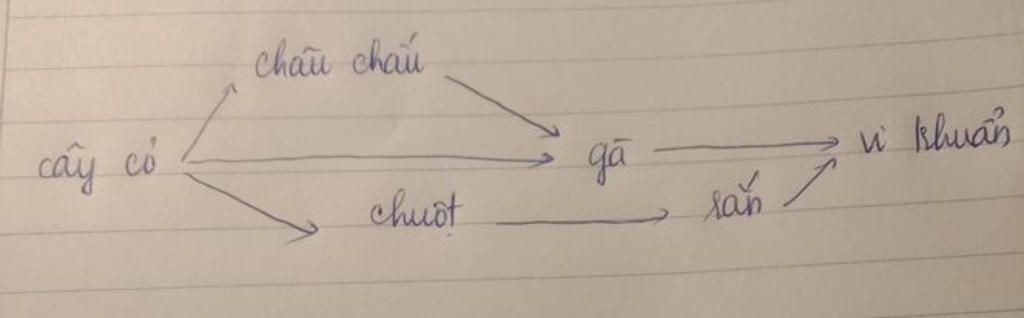 châu chấu
cây cỏ gà vi khuẩn
chuột rắn